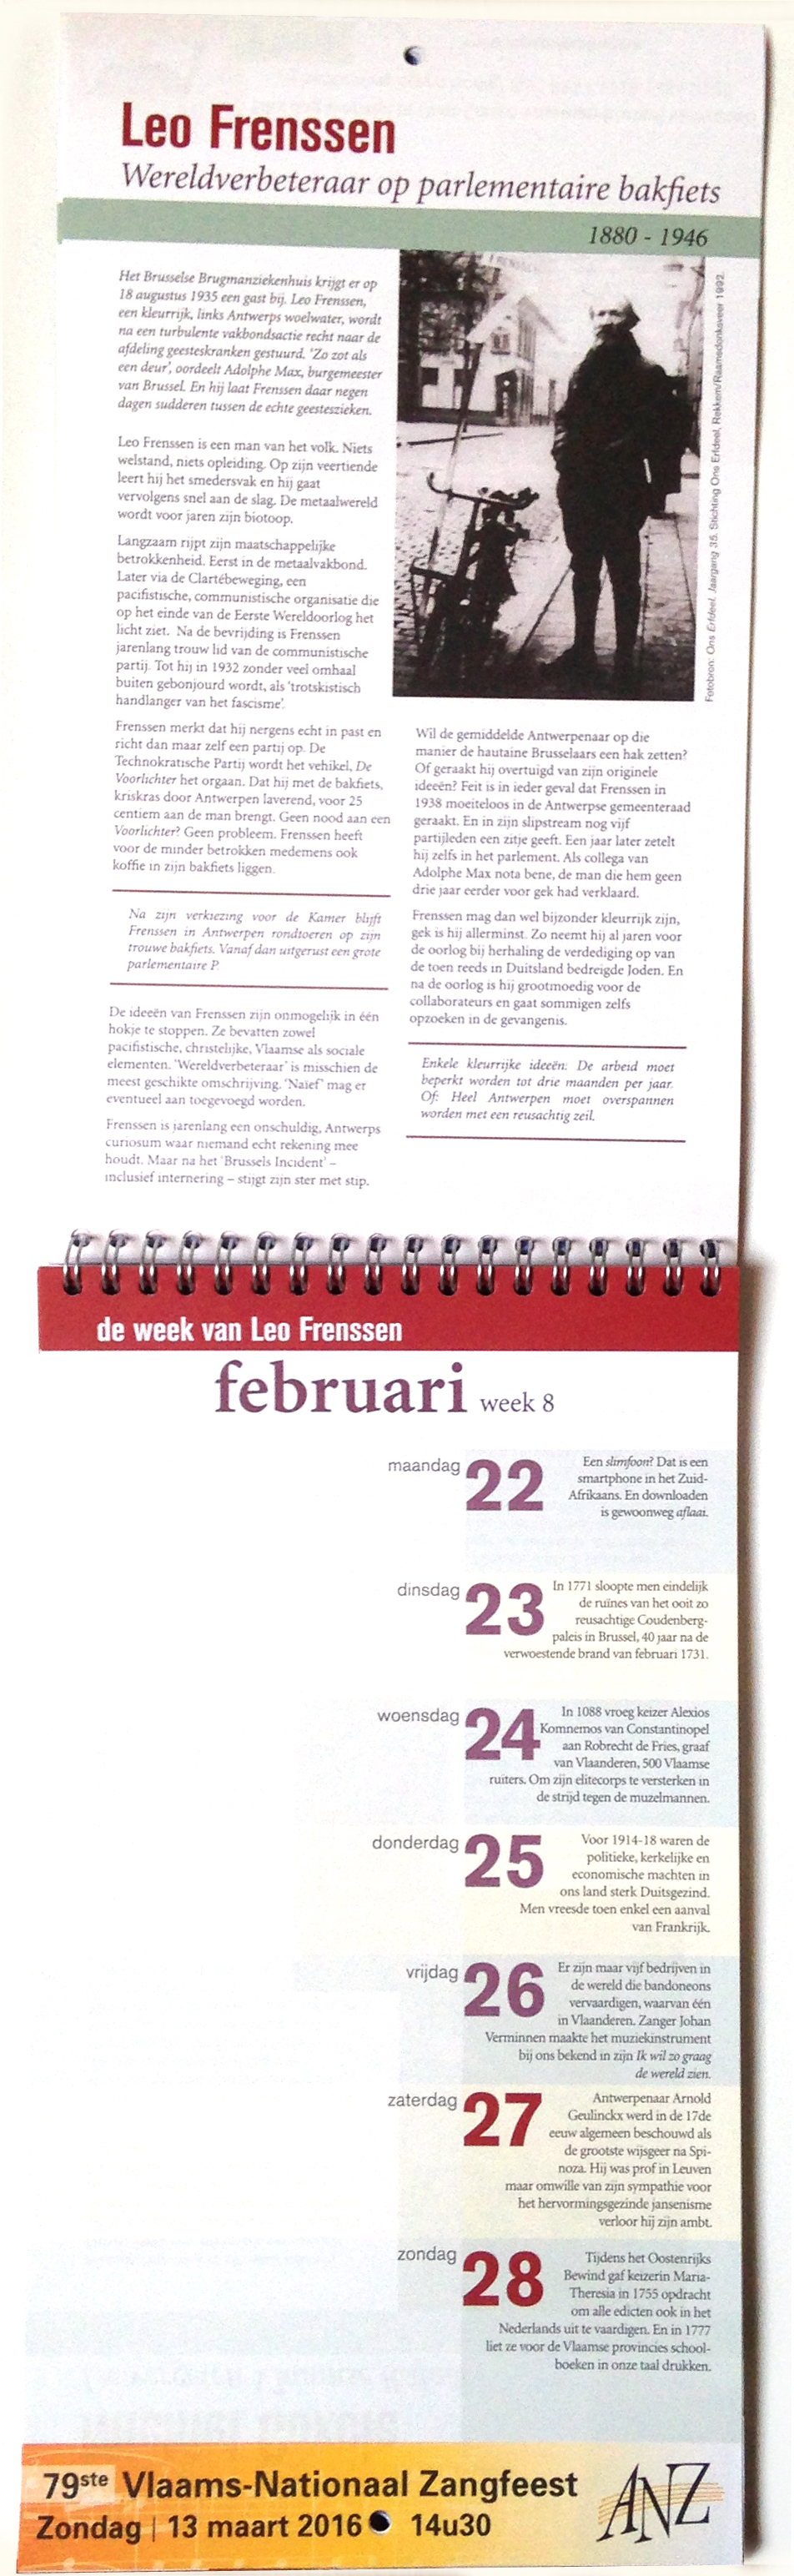 Leo Frenssen
Wereldverbeteraar op parlementaire bakfiets
1880 - 1946
Het Brusselse Brugmanziekenhuis krijgt er op
18 augustus 1935 een gast bij. Leo Frenssen,
een kleurrijk, links Antwerps woelwater, wordt
na een turbulente vakbondsactie recht naar de
afdeling geesteskranken gestuurd. 'Zo zot als
een deur', oordeelt Adolphe Max, burgemeester
van Brussel. En hij laat Frenssen daar negen
dagen sudderen tussen de echte geesteszieken.
Leo Frenssen is een man van het volk. Niets
welstand, niets opleiding. Op zijn veertiende
leert hij het smedersvak en hij gaat
vervolgens snel aan de slag. De metaalwereld
wordt voor jaren zijn biotoop.
Langzaam rijpt zijn maatschappelijke
betrokkenheid. Eerst in de metaalvakbond.
Later via de Clartébeweging, een
pacifistische, communistische organisatie die
op het einde van de Eerste Wereldoorlog het
licht ziet. Na de bevrijding is Frenssen
jarenlang trouw lid van de communistische
partij. Tot hij in 1932 zonder veel omhaal
buiten gebonjourd wordt, als 'trotskistisch
handlanger van het fascisme'.
Frenssen merkt dat hij nergens echt in past en
richt dan maar zelf een partij op. De
Technokratische Partij wordt het vehikel, De
Voorlichter het orgaan. Dat hij met de bakfiets,
kriskras door Antwerpen laverend, voor 25
centiem aan de man brengt. Geen nood aan een
Voorlichter? Geen probleem. Frenssen heeft
voor de minder betrokken medemens ook
koffie in zijn bakfiets liggen.
Na zijn verkiezing voor de Kamer blijft
Frenssen in Antwerpen rondtoeren op zijn
trouwe bakfiets. Vanaf dan uitgerust een grote
parlementaire P.
De ideeën van Frenssen zijn onmogelijk in één
hokje te stoppen. Ze bevatten zowel
pacifistische, christelijke, Vlaamse als sociale
elementen. 'Wereldverbeteraar' is misschien de
meest geschikte omschrijving. 'Naïef' mag er
eventueel aan toegevoegd worden.
Frenssen is jarenlang een onschuldig, Antwerps
curiosum waar niemand echt rekening mee
houdt. Maar na het 'Brussels Incident' –
inclusief internering – stijgt zijn ster met stip.
Fotobron: Ons Erfdeel, Jaargang 35, Stichting Ons Erfdeel, Rekkem/Raamsdonksveer 1992.
Wil de gemiddelde Antwerpenaar op die
manier de hautaine Brusselaars een hak zetten?
Of geraakt hij overtuigd van zijn originele
ideeën? Feit is in ieder geval dat Frenssen in
1938 moeiteloos in de Antwerpse gemeenteraad
geraakt. En in zijn slipstream nog vijf
partijleden een zitje geeft. Een jaar later zetelt
hij zelfs in het parlement. Als collega van
Adolphe Max nota bene, de man die hem geen
drie jaar eerder voor gek had verklaard.
Frenssen mag dan wel bijzonder kleurrijk zijn,
gek is hij allerminst. Zo neemt hij al jaren voor
de oorlog bij herhaling de verdediging op van
de toen reeds in Duitsland bedreigde Joden. En
na de oorlog is hij grootmoedig voor de
collaborateurs en gaat sommigen zelfs
opzoeken in de gevangenis.
Enkele kleurrijke ideeën: De arbeid moet
beperkt worden tot drie maanden per jaar.
Of: Heel Antwerpen moet overspannen
worden met een reusachtig zeil.
de week van Leo Frenssen
februari week 8
maandag 22
Een slimfoon? Dat is een
smartphone in het Zuid-
Afrikaans. En downloaden
is gewoonweg aflaai.
dinsdag 23
In 1771 sloopte men eindelijk
de ruïnes van het ooit zo
reusachtige Coudenberg-
paleis in Brussel, 40 jaar na de
verwoestende brand van februari 1731.
woensdag 24
In 1088 vroeg keizer Alexios
Komnemos van Constantinopel
aan Robrecht de Fries, graaf
van Vlaanderen, 500 Vlaamse
ruiters. Om zijn elitecorps te versterken in
de strijd tegen de muzelmannen.
donderdag 25
Voor 1914-18 waren de
politieke, kerkelijke en
economische machten in
ons land sterk Duitsgezind.
Men vreesde toen enkel een aanval
van Frankrijk.
vrijdag 26
Er zijn maar vijf bedrijven in
de wereld die bandoneons
vervaardigen, waarvan één
in Vlaanderen. Zanger Johan
Verminnen maakte het muziekinstrument
bij ons bekend in zijn Ik wil zo graag
de wereld zien.
zaterdag 27
Antwerpenaar Arnold
Geulinckx werd in de 17de
eeuw algemeen beschouwd als
de grootste wijsgeer na Spi-
noza. Hij was prof in Leuven
maar omwille van zijn sympathie voor
het hervormingsgezinde jansenisme
verloor hij zijn ambt.
zondag 28
Tijdens het Oostenrijks
Bewind gaf keizerin Maria-
Theresia in 1755 opdracht
om alle edicten ook in het
Nederlands uit te vaardigen. En in 1777
liet ze voor de Vlaamse provincies school-
boeken in onze taal drukken.
79ste Vlaams-Nationaal Zangfeest
Zondag | 13 maart 2016 14u30
ANZ